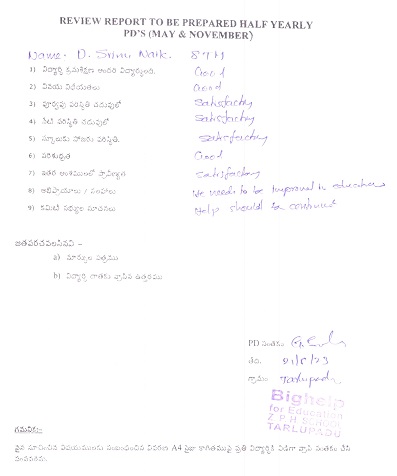 REVIEW REPORT TO BE PREPARED HALF YEARLY
PD'S (MAY & NOVEMBER)
Name - D. Srinu Naik. 8TH
1) విద్యార్థి క్రమశిక్షణ Good
2) విషయ విధేయతలు Good
3) పూర్వపు పరిస్థితి చదువులో Satisfactory
4) నేటి పరిస్థితి చదువులో Satisfactory
5) స్కూలుకు హాజరు పరిస్థితి. Satisfactory
6) పరిశుభ్రత Good
7) ఇతర అంశములలో ప్రావీణ్యత Satisfactory
8) అభిప్రాయాలు / సలహాలు He needs to be improved in education
9) కమిటీ సభ్యుల సూచనలు Help should be continued
జతపరచవలసినవి –
a) మార్కుల పత్రము
b) విద్యార్థి దాతకు వ్రాసిన ఉత్తరము
PD సంతకం
తేది. 21/6/23
గ్రామం Tarlupadu
Bighelp
for Education
Z P H SCHOOL
TARLUPADU
గమనిక:–
పైన సూచించిన విషయములకు సంబంధించిన వివరణ A4 సైజు కాగితముపై ప్రతి విద్యార్థికి విడిగా వ్రాసి సంతకం చేసి
పంపవలెను.